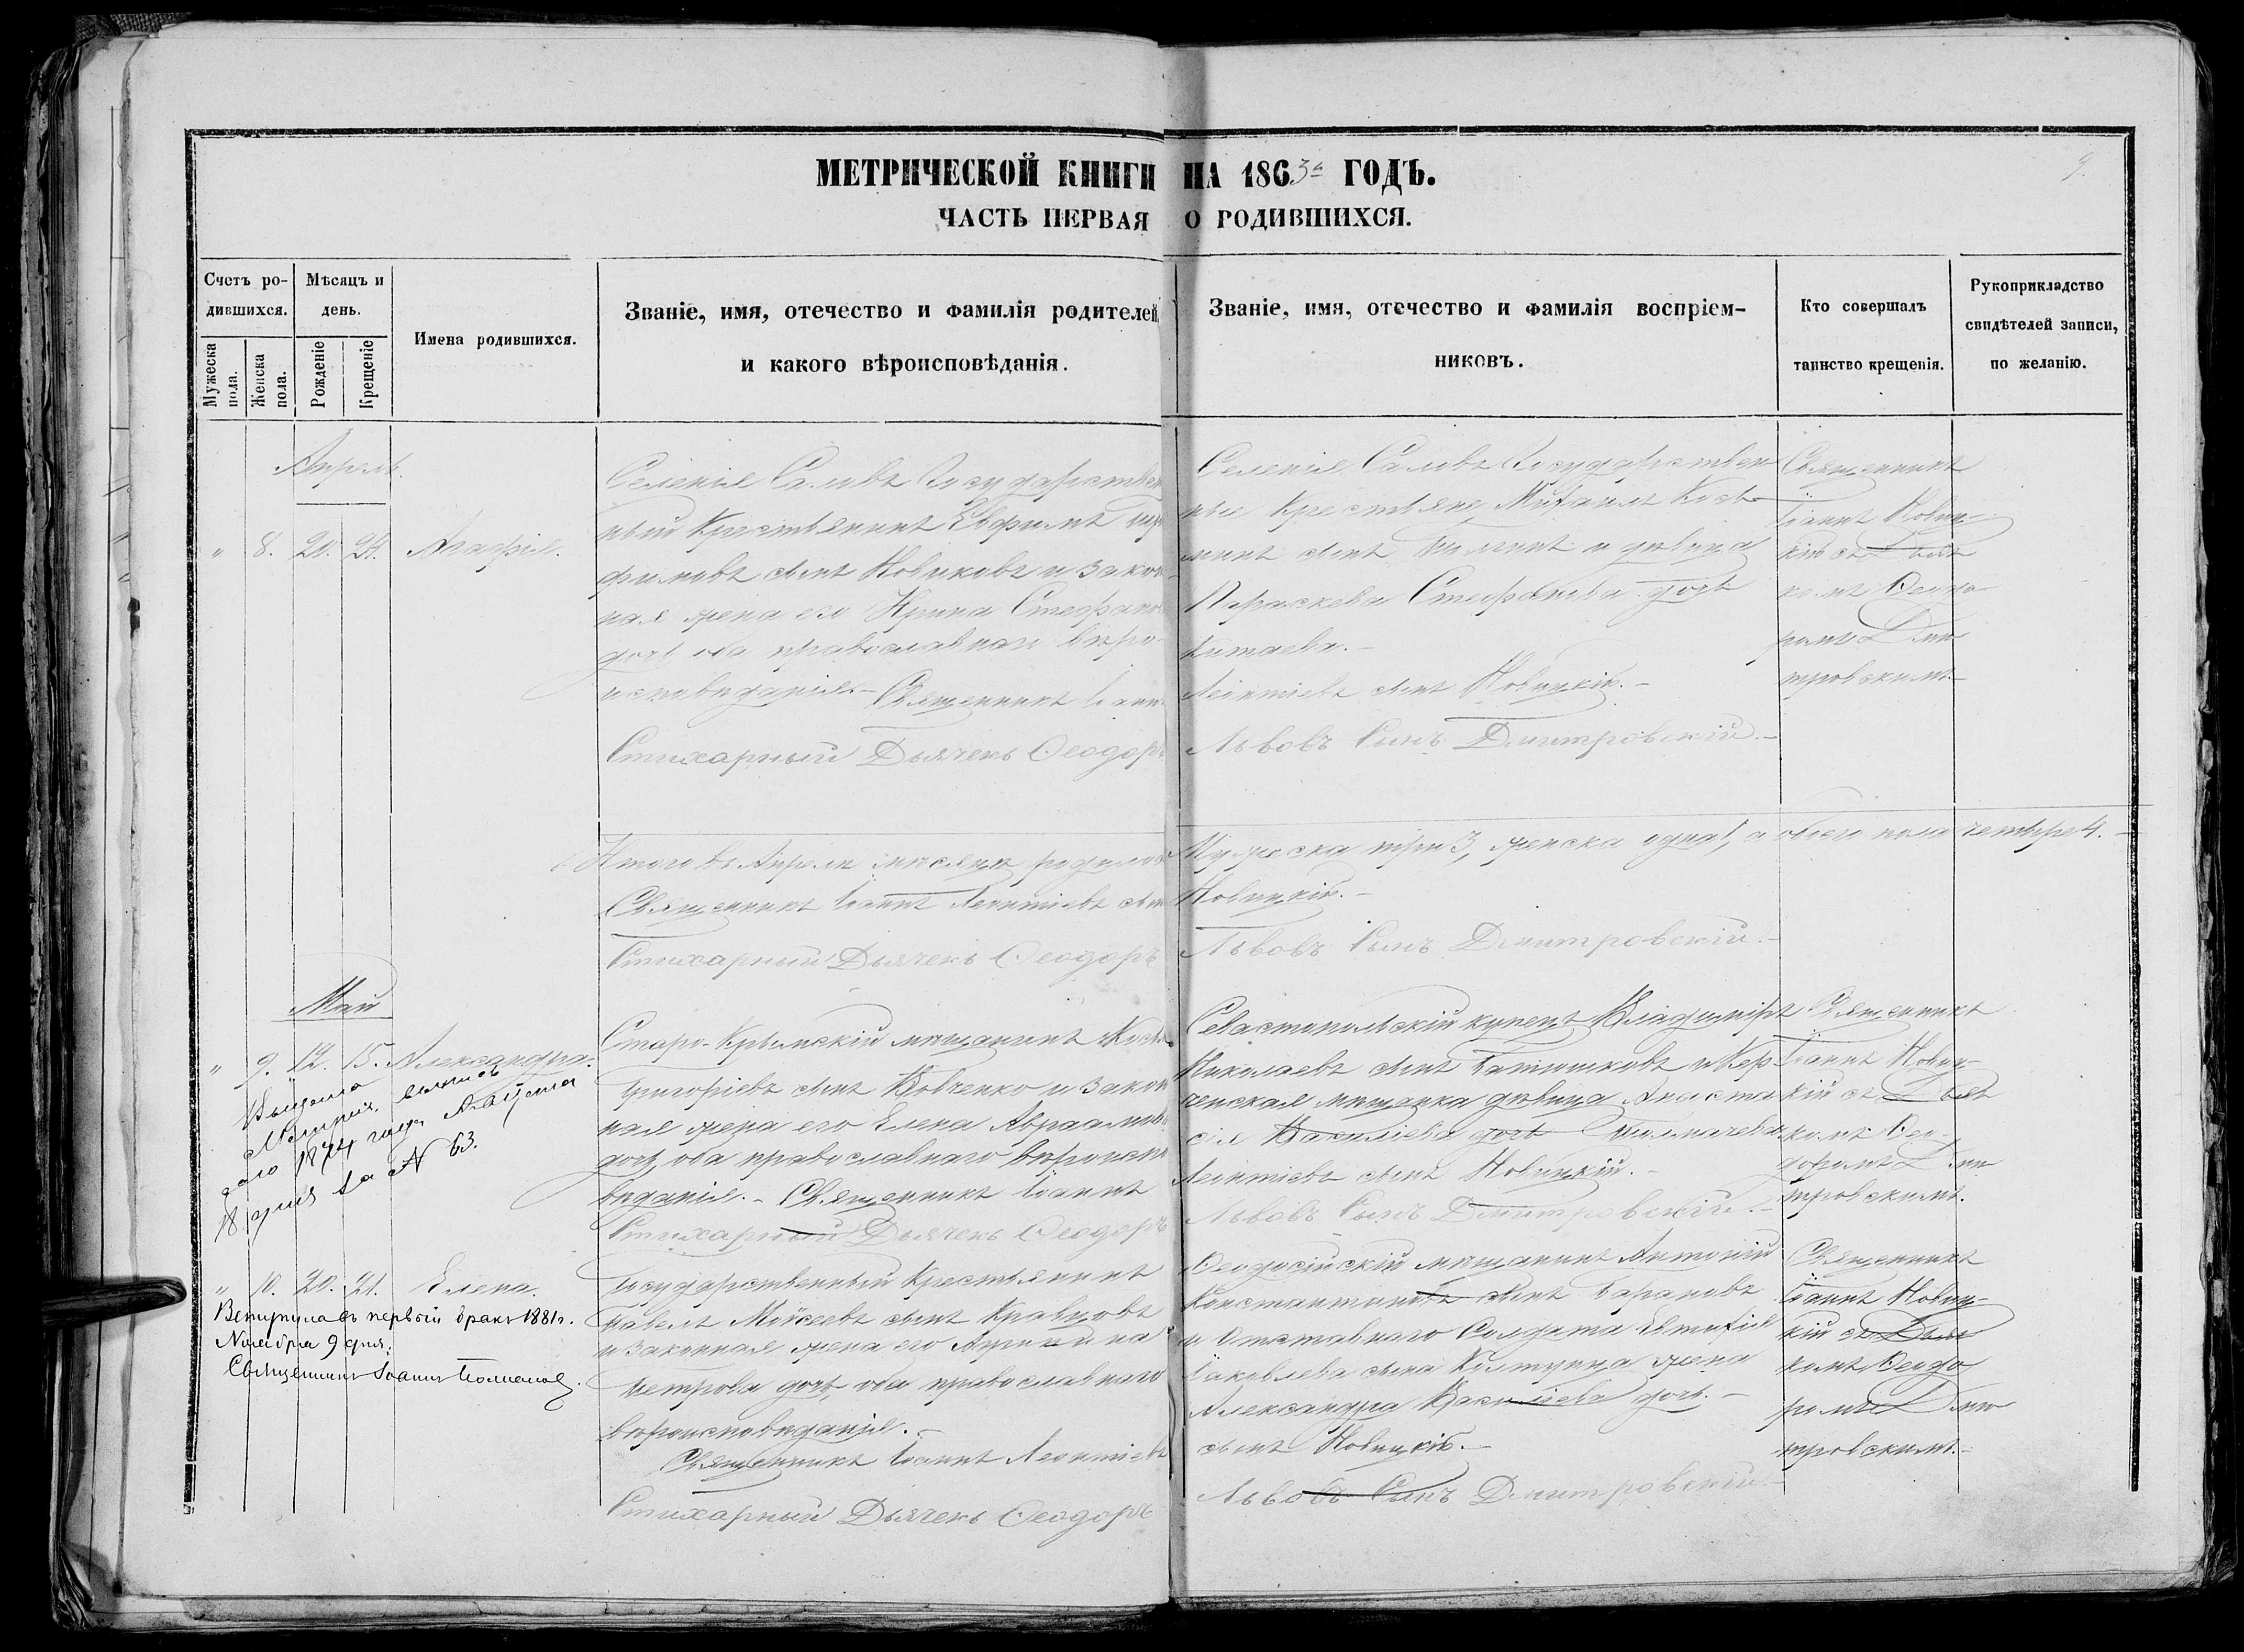 МЕТРИЧЕСКОЙ КНИГИ НА 1863й ГОДЪ.
9.
ЧАСТЬ ПЕРВАЯ О РОДИВШИХСЯ.
Счетъ ро-
дившихся.
Мужеска пола.
Женска пола.
Мѣсяцъ и
день.
Рожденіе
Крещеніе
Имена родившихся.
Званіе, имя, отечество и фамилія родителей,
и какого вѣроисповѣданія.
Званіе, имя, отечество и фамилія воспріем-
никовъ.
Кто совершалъ
таинство крещенія.
Рукоприкладство
свидѣтелей записи,
по желанію.
Апрель.
" 8. 20. 24. Агафія.
Селенія Саловъ Государствен
ный Крестьянинъ Евфимъ
фимовъ сынъ Новиковъ и закон
ная жена его Ирина Стефано
дочь оба православнаго вѣро-
исповѣданія.- Священникъ Іоаннъ
Стихарный Дьячекъ Ѳеодоръ
Селенія Саловъ Государствен
ные Крестьяне, Михаилъ Кось-
минъ сынъ и дѣвица
Параскева Стефанова дочь
Китаева.-
Леонтіевъ сынъ Новицкій.-
Львовъ Сынъ Дмитровскій.-
Священникъ
Іоаннъ Новиц-
кій съ Дьяч
комъ Ѳеодо-
ромъ Дми
тровскимъ.-
Итого въ Апрелѣ мѣсяцѣ родилось Мужеска три 3, женска одна 1, а обоего пола четыре 4.-
Священникъ Іоаннъ Леонтіевъ сынъ Новицкій.-
Стихарный Дьячекъ Ѳеодоръ Львовъ Сынъ Дмитровскій.-
Май
" 9. 12. 15. Александра.
Выдана
Метрич. выпись
1874 года
18 дня за № 63.
Старо-Крымскій мѣщанинъ
Григоріевъ сынъ Вовченко и закон
ная жена его Елена Авраамова
дочь, оба православнаго вѣроиспо
вѣданія.- Священникъ Іоаннъ
Стихарный Дьячекъ Ѳеодоръ
Севастопольскій купецъ Владиміръ
Николаевъ сынъ Батюшковъ и Кер-
ченская мѣщанка дѣвица Анаста
сія Василіева дочь Толмачева.
Леонтіевъ сынъ Новицкій.-
Львовъ Сынъ Дмитровскій.-
Священникъ
Іоаннъ Новиц-
кій съ Дьяч
комъ Ѳео-
доромъ Дми
тровскимъ.
" 10. 20. 21. Елена.
Вступила въ первый бракъ 1881г.
Ноября 9 дня.
Священникъ Іоаннъ
Государственный Крестьянинъ
Павелъ Мойсеевъ сынъ Кравцовъ
и законная жена его
Петрова дочь, оба православнаго
вѣроисповѣданія.-
Священникъ Іоаннъ Леонтіевъ
Стихарный Дьячекъ Ѳеодоръ
Ѳеодосійскій мѣщанинъ Антоній
Константиновъ сынъ Барановъ
и Отставнаго Солдата Евтихія
Яковлева сына жена
Александра Василіева дочь.-
сынъ Новицкій.-
Львовъ Сынъ Дмитровскій.-
Священникъ
Іоаннъ Новиц-
кій съ Дьяч
комъ Ѳеодо
ромъ Дми
тровскимъ.-